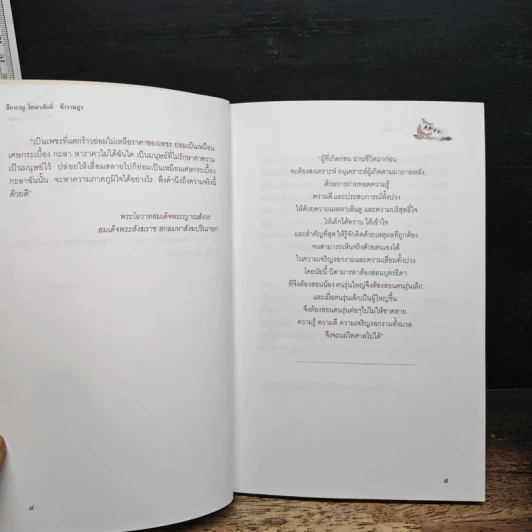 ลึกหาญ โคมรศักดิ์ จำรานฎร
"เป็นเพชรที่แตกร้าวย่อมไม่เหลือราคาของเพชร ย่อมเป็นเหมือน
เศษกระเบื้อง กะลา หาราคาไม่ได้ฉันใด เป็นมนุษย์ที่ไม่รักษาค่าความ
เป็นมนุษย์ไว้ ปล่อยให้เสื่อมสลายไปก็ย่อมเป็นเหมือนเศษกระเบื้อง
กะลาฉันนั้น จะหาความภาคภูมิใจได้อย่างไร พึงคำนึงถึงความจริงนี้
ด้วยดี"
พระโอวาทสมเด็จพระญาณสังวร
สมเด็จพระสังฆราช สกลมหาสังฆปริณายก
๘
"ผู้ที่เกิดก่อน ผ่านชีวิตมาก่อน
จะต้องสงเคราะห์ อนุเคราะห์ผู้เกิดตามมาภายหลัง
ด้วยการถ่ายทอดความรู้
ความดี และประสบการณ์ทั้งปวง
ให้ด้วยความเมตตาเอ็นดู และความบริสุทธิ์ใจ
ให้เด็กได้ทราบ ได้เข้าใจ
และสำคัญที่สุด ให้รู้จักคิดด้วยเหตุผลที่ถูกต้อง
จนสามารถเห็นจริงด้วยตนเองได้
ในความเจริญงอกงามและความเสื่อมทั้งปวง
โดยนัยนี้ บิดามารดาต้องสอนบุตรธิดา
พี่จึงต้องสอนน้อง คนรุ่นใหญ่จึงต้องสอนคนรุ่นเล็ก
และเมื่อคนรุ่นเล็กเป็นผู้ใหญ่ขึ้น
จึงต้องสอนคนรุ่นต่อๆไปไม่ให้ขาดสาย
ความรู้ ความดี ความเจริญงอกงามทั้งมวล
จึงจะแผ่ไพศาลไปได้"
๙